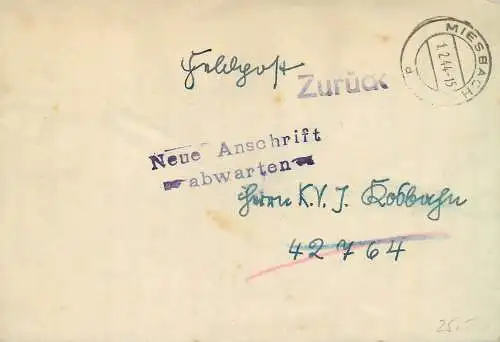 Feldpost
Zurück
MIESBACH
1.2.44-15
Neue Anschrift
abwarten
Herrn K.V.I.
42764
25.-